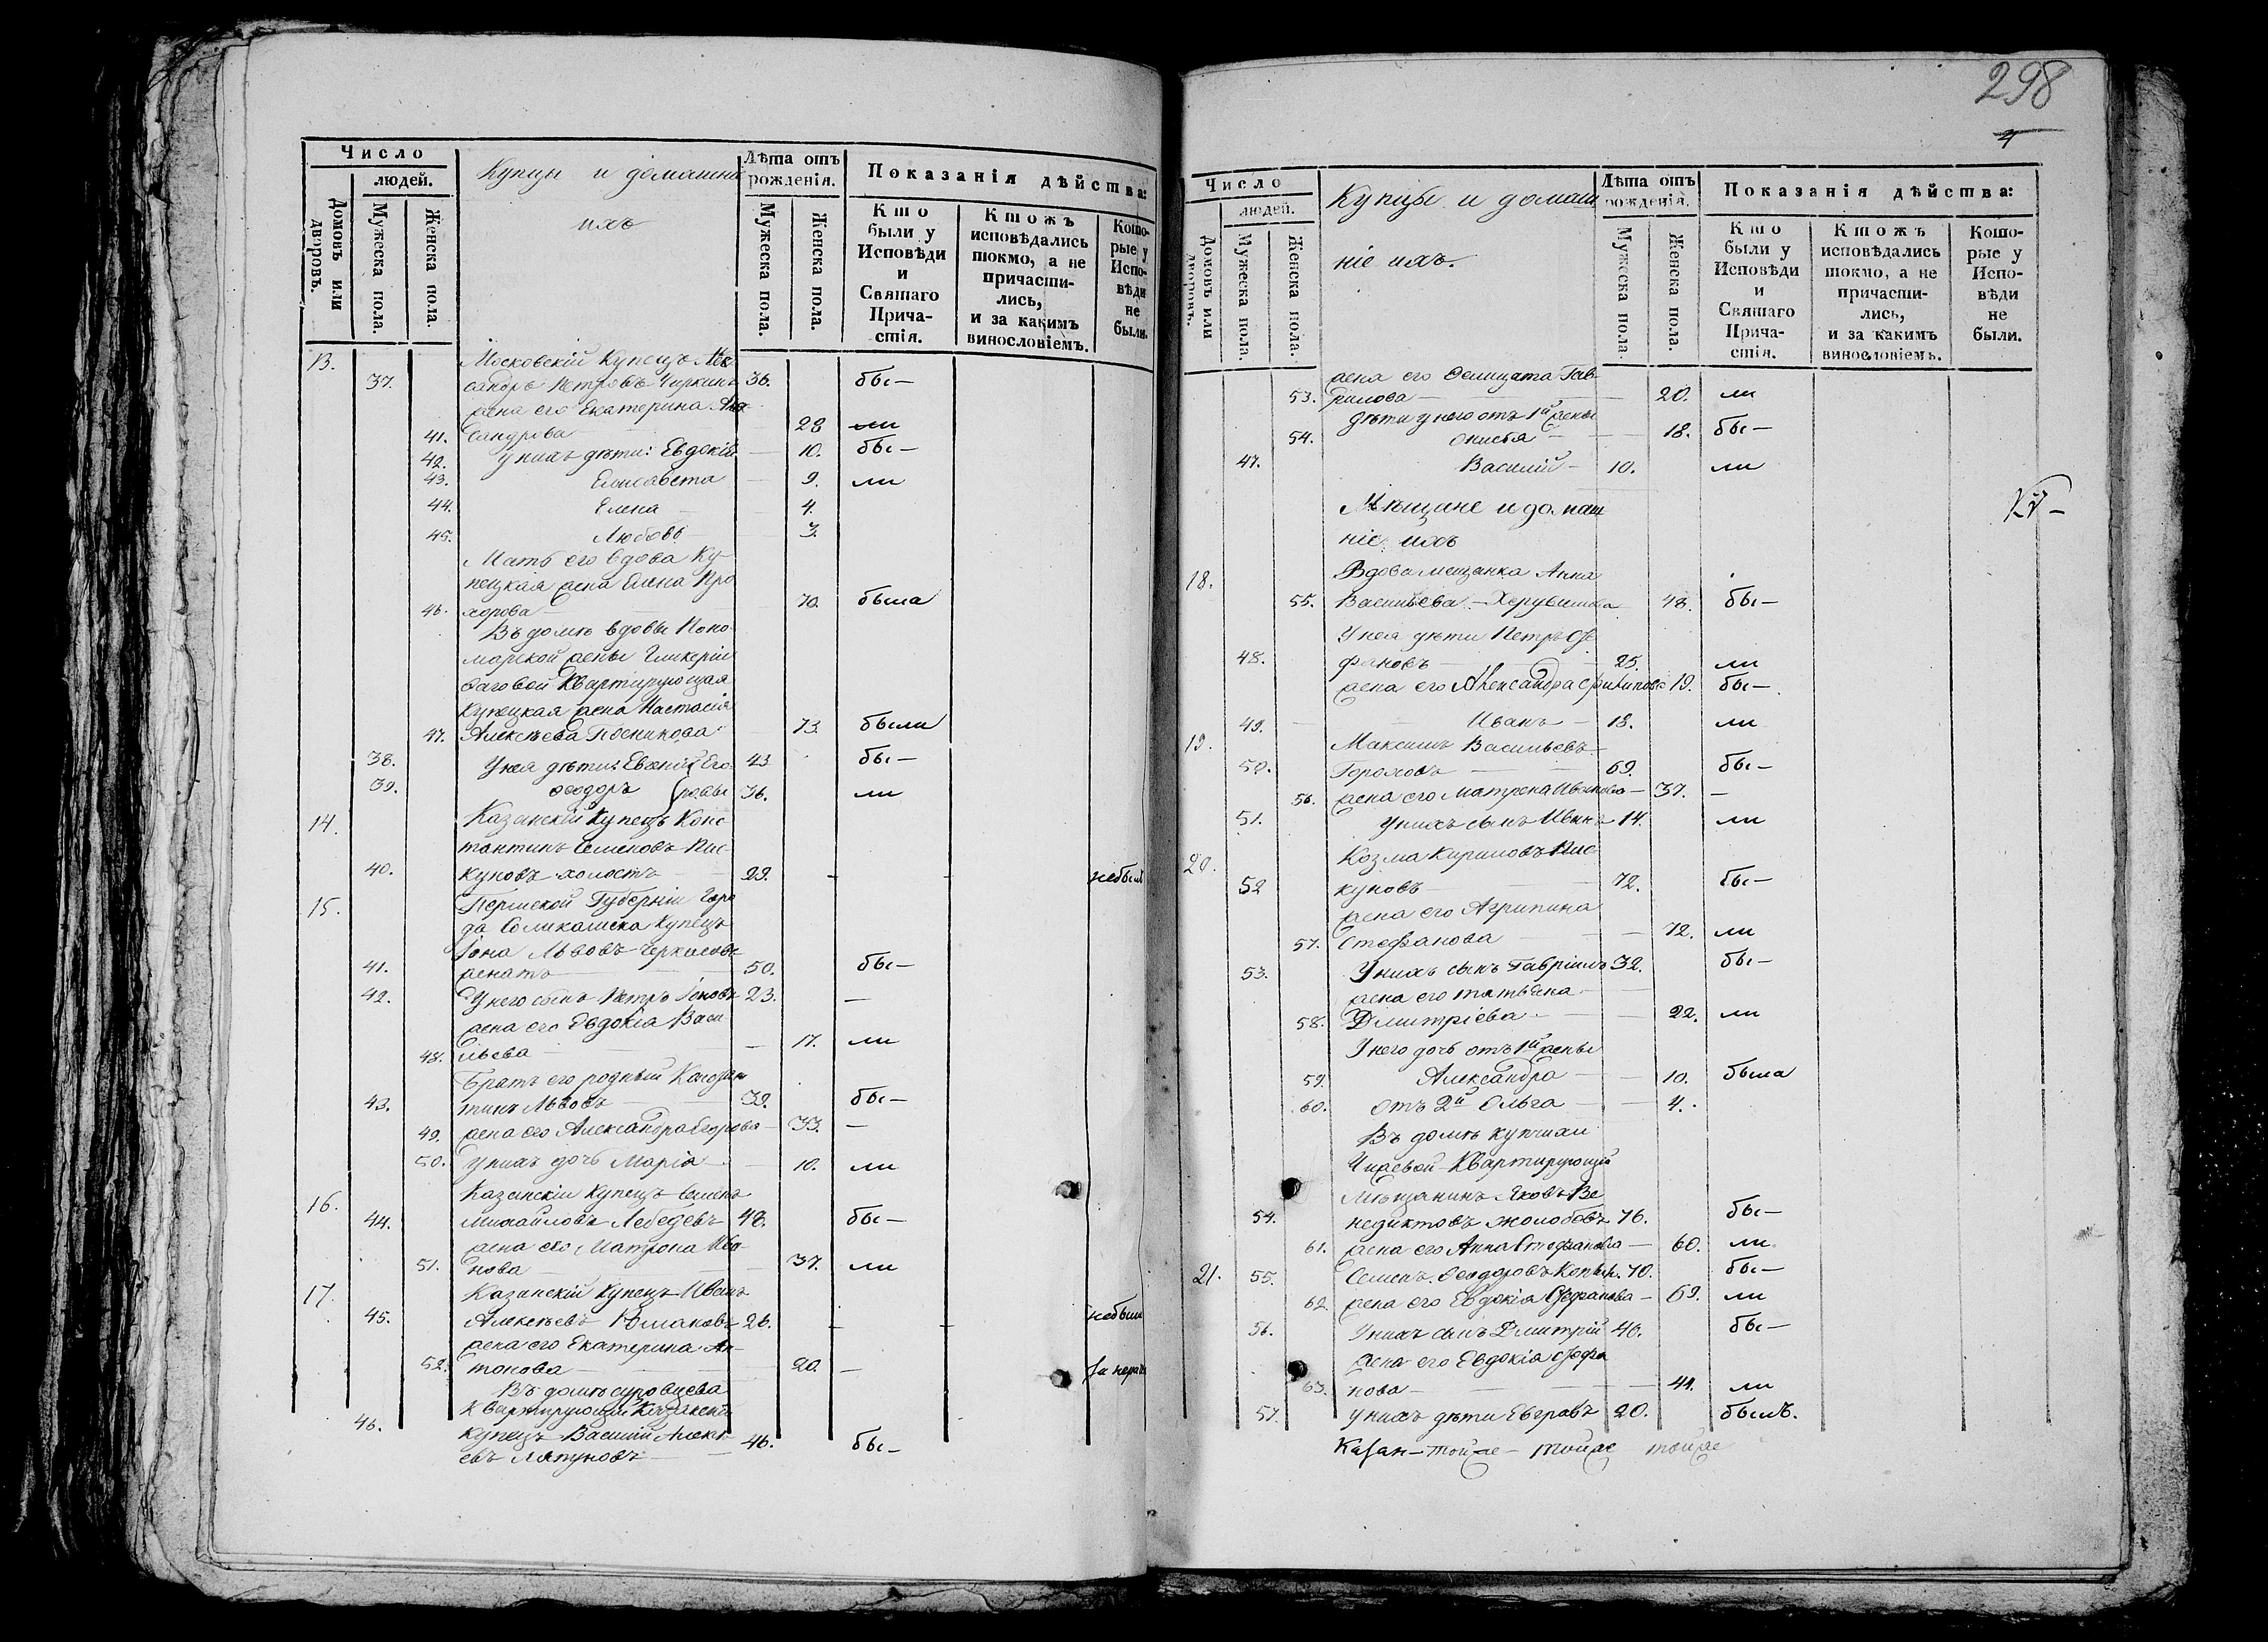 Число
людей.
Домовъ или дворовъ.
Мужеска пола.
Женска пола.
Купцы и домашні
ихъ
Лѣта отъ рожденія.
Мужеска пола.
Женска пола.
Показанія дѣйства:
Кто были у Исповѣди и Святаго Прича-стія.
Ктожъ исповѣдались токмо, а не причасти-лись, и за какимъ винословіемъ.
Кото-рые у Испо-вѣди не были.
13. Московскій Купецъ Алек
37. сандръ Петровъ Чиркинъ 36. бы—
жена его Екатерина Алек
41. сандрова 28 ли
42. у нихъ дѣти: Евдокія 10. бы—
43. Елисавета 9. ли
44. Елена 4.
45. Любовь 3.
Мать его вдова Ку
пецкая жена Елена Про
46. хорова 70. была
Въ домѣ вдовы Поно
марской жены Гликеріи
Квартирующая
Купецкая жена Настасія
47. Алексѣева 73 были
38. У нея дѣти: Евгеній Его 43 бы—
39. Ѳеодоръ ровы 36. ли
14. Казанскій Купецъ Конс
тантинъ Семеновъ Пис
40. куновъ холостъ 29. небылъ
15. Пермской Губерніи Горо
да Соликамска Купецъ
Іона Львовъ Черкасовъ
41. женатъ 50. бы—
42. У него сынъ Петръ Іоновъ 23. —
жена его Евдокія Васи
48. льева 17. ли
Братъ его родный Констан
43. тинъ Львовъ 39. бы—
49. жена его Александра Егорова 33. —
50. У нихъ дочь Марія 10. ли
16. Казанскій Купецъ Семенъ
44. Михайловъ Лебедевъ 48. бы—
жена его Матрона Ива
51. нова 37. ли
17. Казанскій Купецъ Иванъ
45. Алексѣевъ Юмановъ 26. небыли
жена его Екатерина Ан
52. тонова 20. — За нерад
Въ домѣ Суровцева
Квартирующій Казанскій
46. купецъ Василій Алексѣ 46. бы—
евъ Ляпуновъ
298
4
Число
людей.
Домовъ или дворовъ.
Мужеска пола.
Женска пола.
Купцы и домаш
ніе ихъ.
Лѣта отъ рожденія.
Мужеска пола.
Женска пола.
Показанія дѣйства:
Кто были у Исповѣди и Святаго Прича-стія.
Ктожъ исповѣдались токмо, а не причасти-лись, и за какимъ винословіемъ.
Кото-рые у Испо-вѣди не были.
жена его Фелицата Гав
53. рилова 20. ли
дѣти у него отъ 1й жены
54. Анисья 18. бы—
47. Василій 10. ли
Мѣщане и домаш
ніе ихъ
18. Вдова мещанка Анна
55. Васильева Херувимова 48. бы—
У нея дѣти Петръ Сте
48. фановъ 25. ли
жена его Александра Филипова 19. бы—
49. Иванъ 18. ли
19. Максимъ Васильевъ
50. Гороховъ 69. бы—
56. жена его Матрена Иванова 37. —
51. У нихъ сынъ Иванъ 14. ли
20. Козма Кириловъ Пис
52 куновъ 72. бы—
жена его Агрипина
57. Стефанова 72. ли
53. У нихъ сынъ Гавріилъ 32. бы—
жена его Татьяна
58. Дмитріева 22. ли
У него дочь отъ 1й жены
59. Александра 10. была
60. отъ 2й Ольга 4.
Въ домѣ купчихи
Квартирующій
Мѣщанинъ Яковъ Ве
54. недиктовъ Жолобовъ 76. бы—
61. жена его Анна Стефанова 60. ли
21. 55. Семенъ Ѳеодоровъ 70. бы—
62. жена его Евдокія Стефанова 69. ли
56. У нихъ сынъ Дмитрій 40. бы—
жена его Евдокія Стефа
63. нова 41. ли
57. У нихъ дѣти Евграфъ 20. былъ.
Казан— тойже— тойже тойже